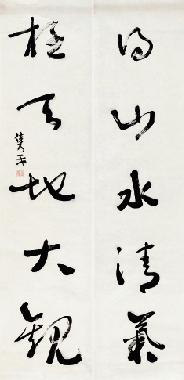 得山水清气
极天地大观